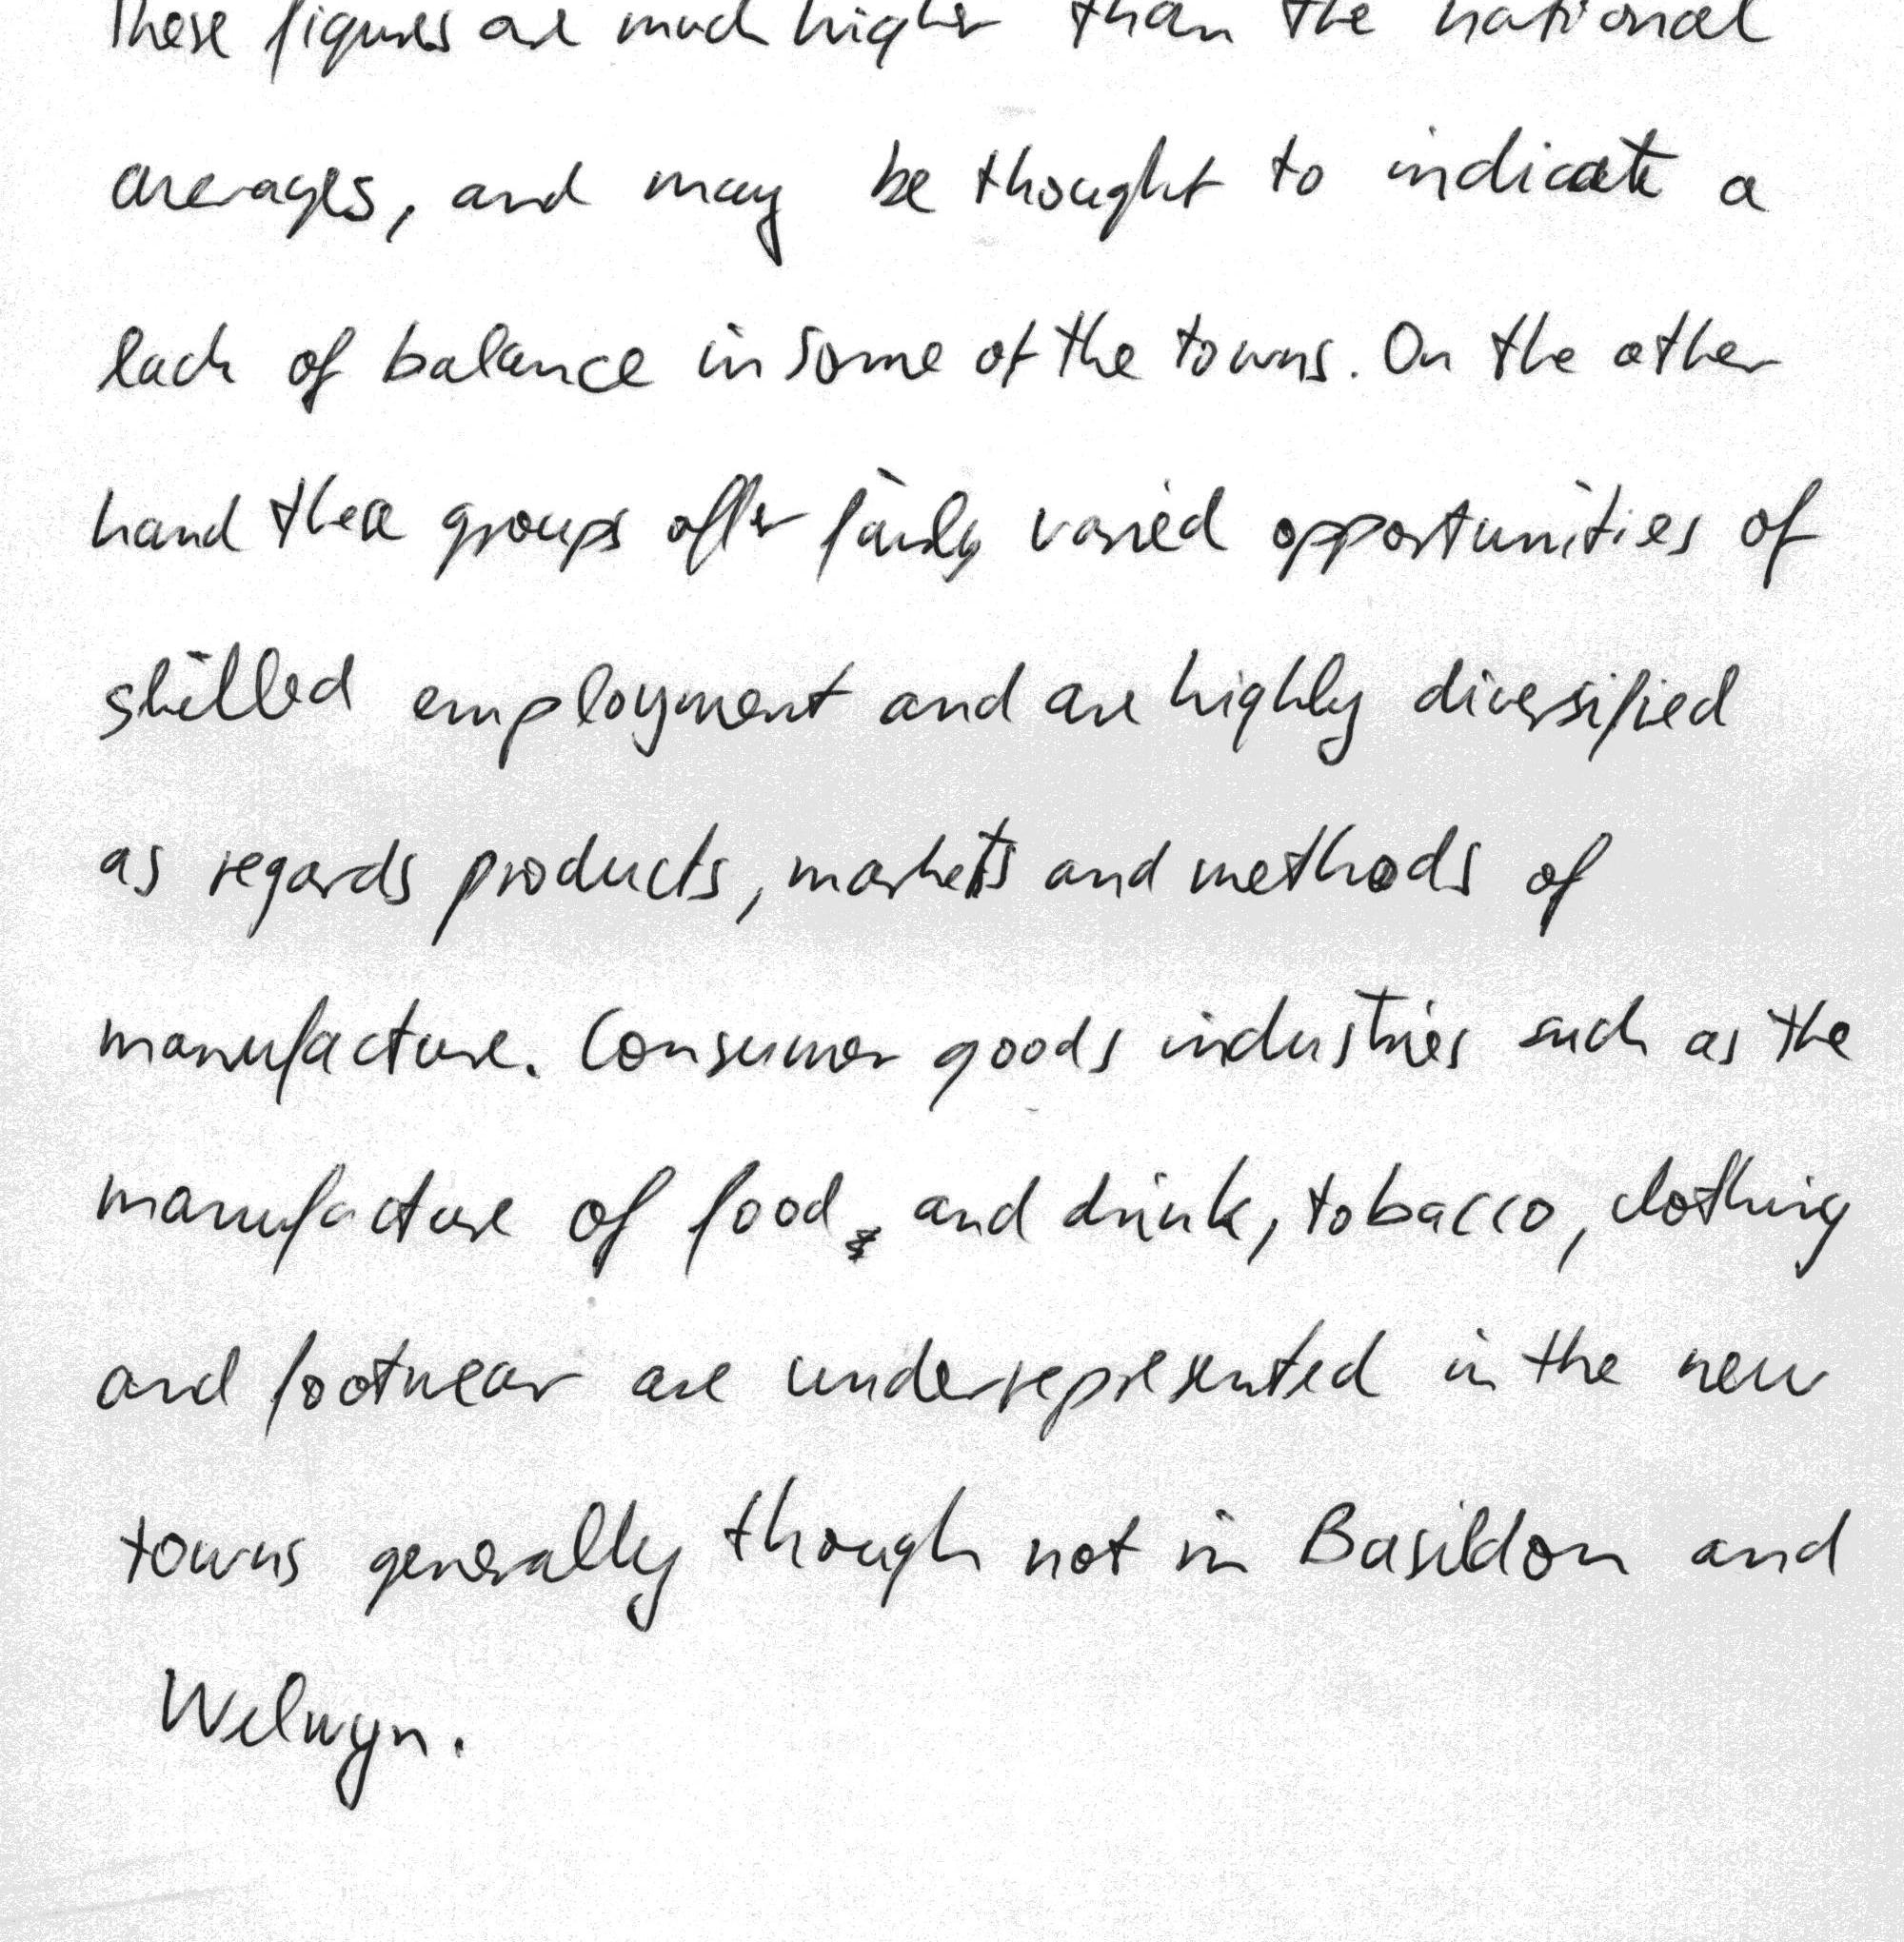 These figures are much higher than the national
averages, and may be thought to indicate a
lack of balance in some of the towns. On the other
hand these groups offer fairly varied opportunities of
skilled employment and are highly diversified
as regards products, markets and methods of
manufacture. Consumer goods industries such as the
manufacture of food and drink, tobacco, clothing
and footwear are underrepresented in the new
towns generally though not in Basildon and
Welwyn.